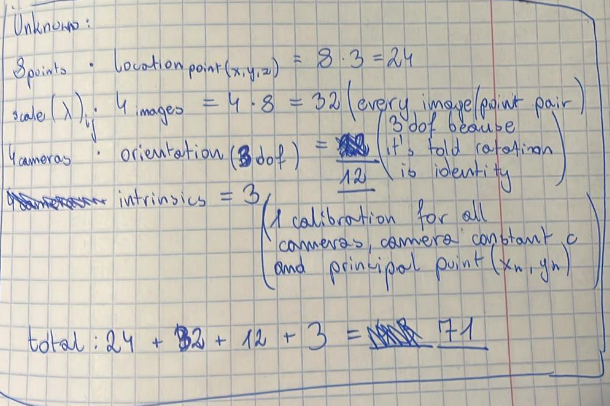 Unknown:
8 points · location point (x,y,z) = 8 · 3 = 24
scale (λ)ij : 4 images = 4 · 8 = 32 (every image/point pair)
4 cameras · orientation (3 dof) = 12 (3 dof beause it's told rotation is identity)
intrinsics = 3
(1 calibration for all
cameras, camera constant c
and principal point (xn, yn))
total: 24 + 32 + 12 + 3 = 71